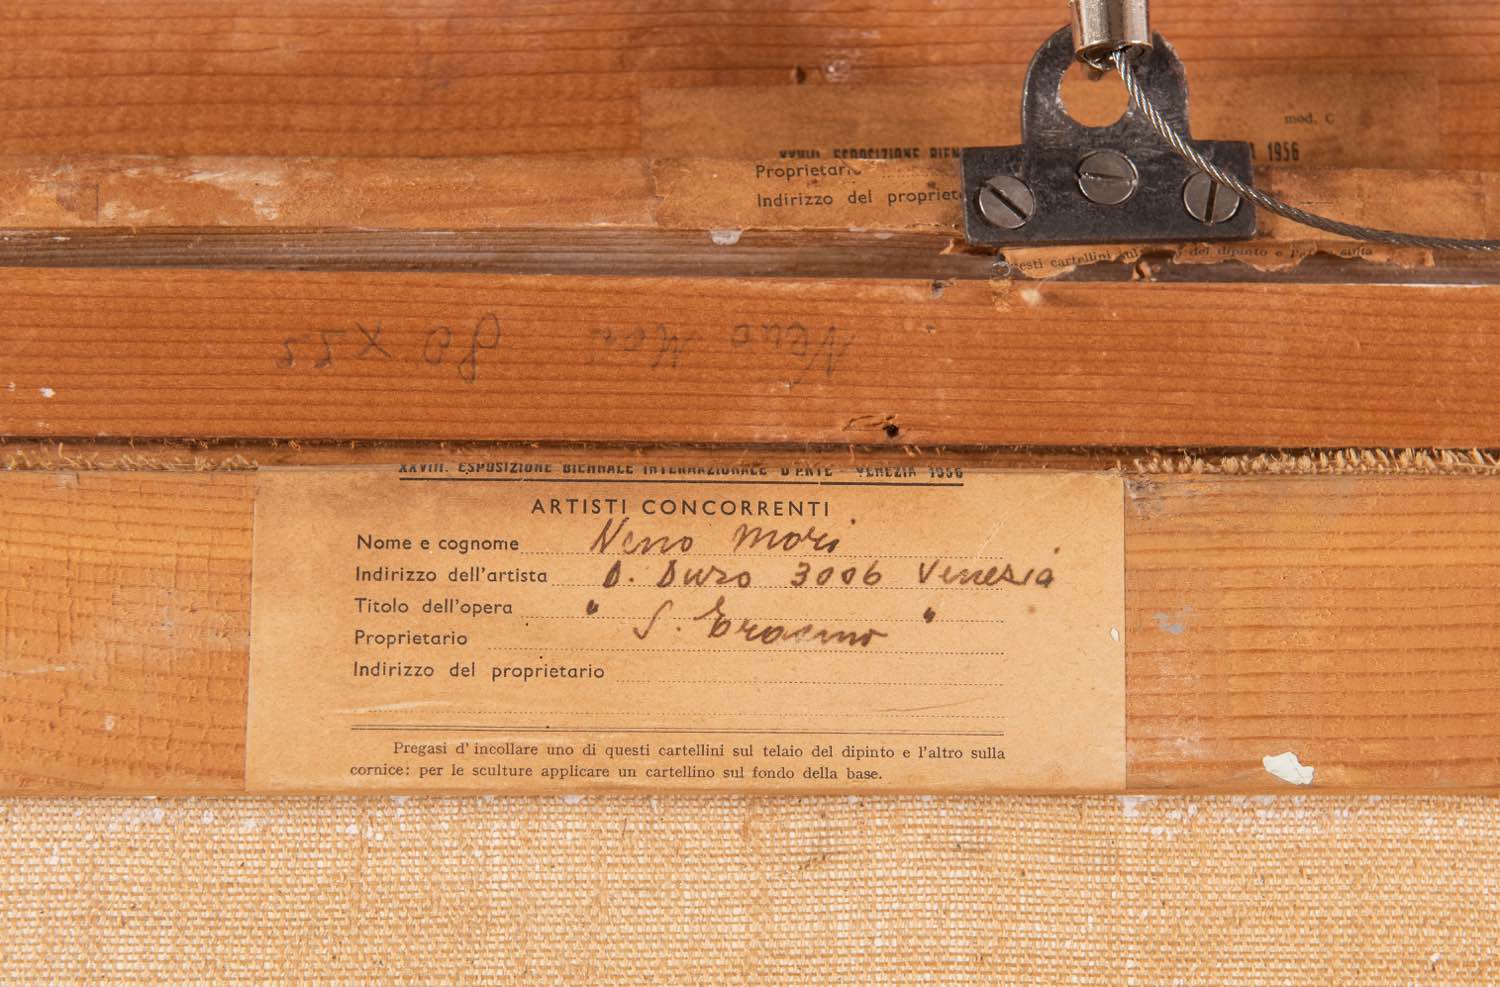 mod. C
XXVIII. ESPOSIZIONE BIEN 1956
Proprietario
Indirizzo del propriet
questi cartellini sul del dipinto e sulla
Neno Mori 80 x 55
XXVIII. ESPOSIZIONE BIENNALE INTERNAZIONALE D'ARTE - VENEZIA 1956
ARTISTI CONCORRENTI
Nome e cognome Neno Mori
Indirizzo dell'artista D. Duro 3006 Venezia
Titolo dell'opera " S. Erasmo "
Proprietario
Indirizzo del proprietario
Pregasi d'incollare uno di questi cartellini sul telaio del dipinto e l'altro sulla
cornice: per le sculture applicare un cartellino sul fondo della base.